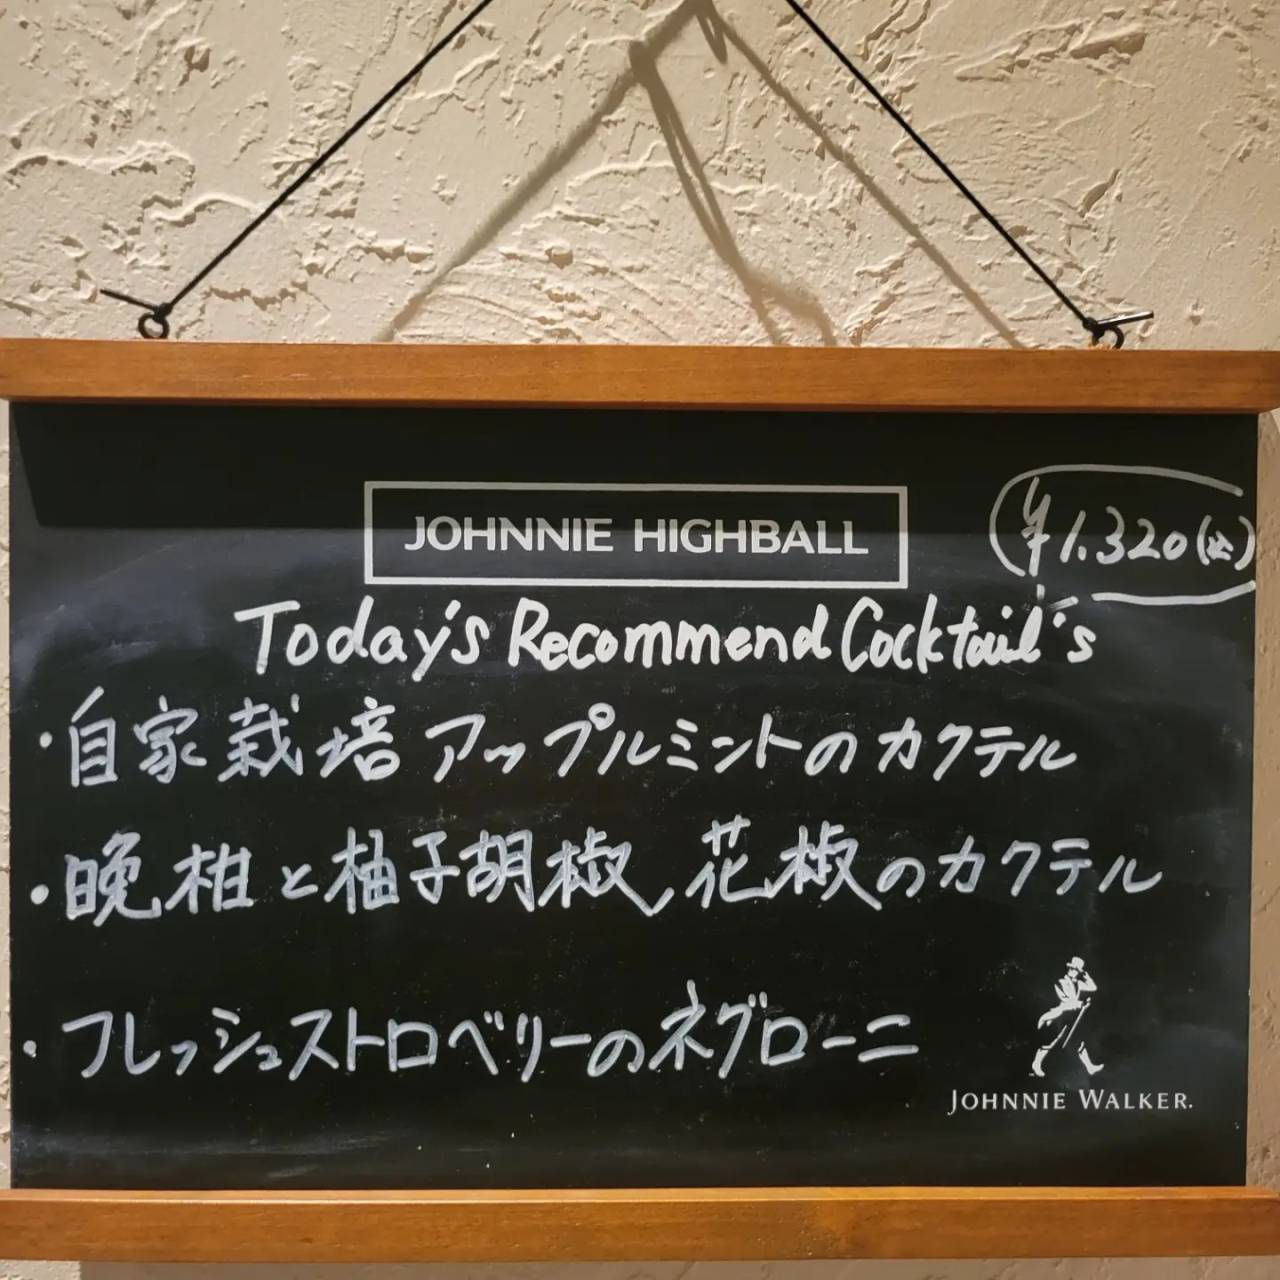 JOHNNIE HIGHBALL
¥1.320(込)
Today's Recommend Cocktail's
・自家栽培アップルミントのカクテル
・晩柑と柚子胡椒、花椒のカクテル
・フレッシュストロベリーのネグローニ
JOHNNIE WALKER.